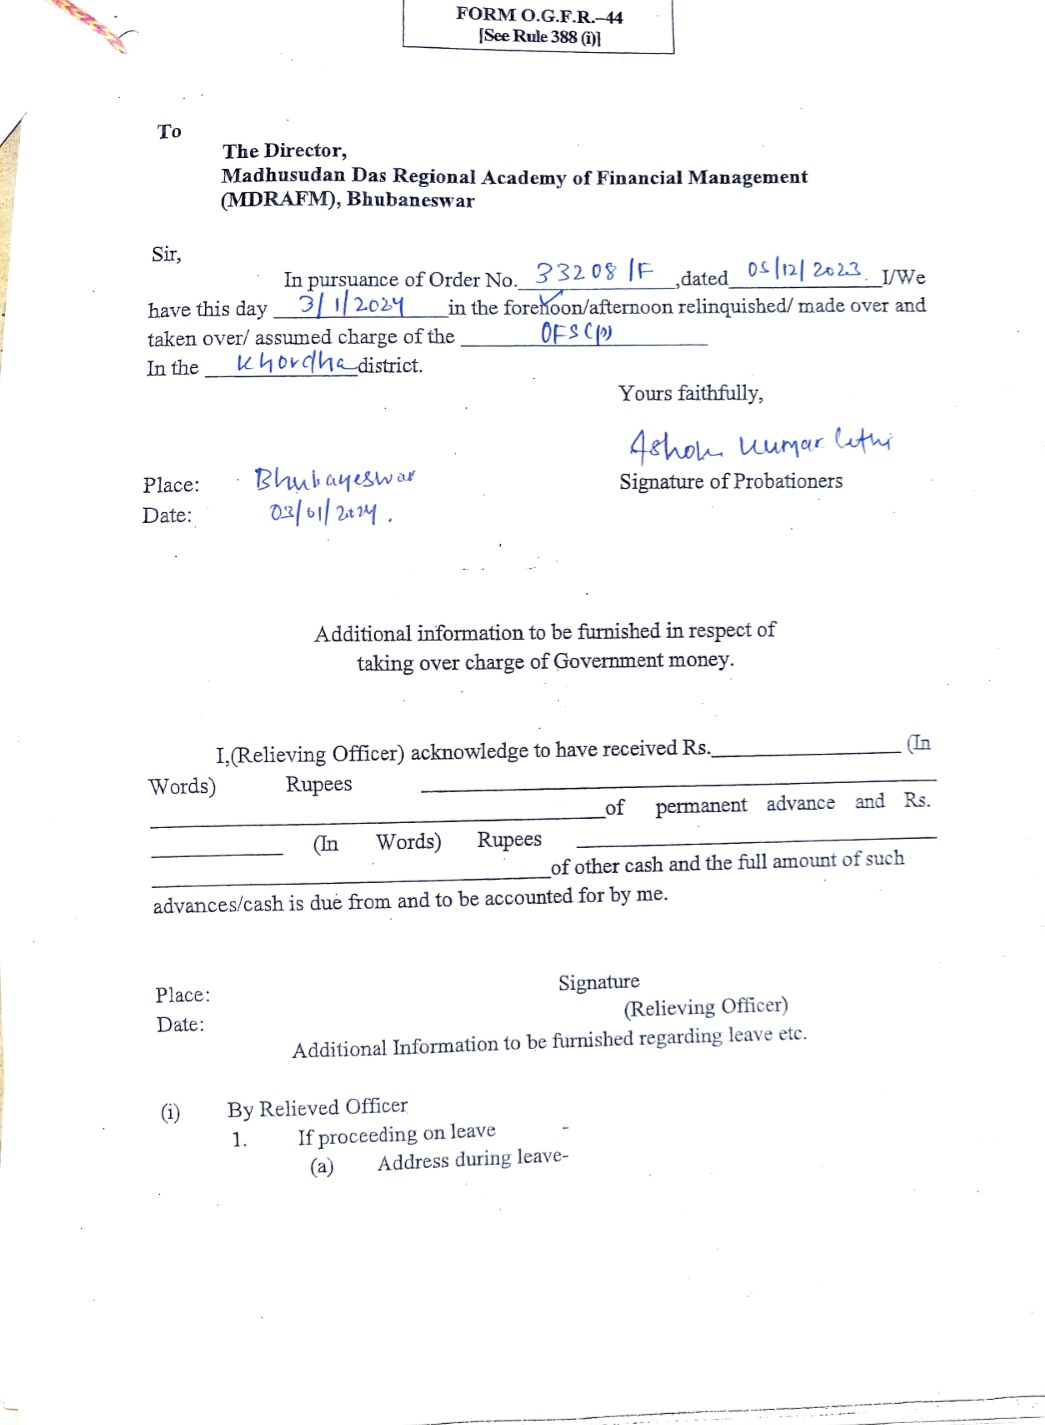 FORM O.G.F.R.–44
[See Rule 388 (i)]
To
The Director,
Madhusudan Das Regional Academy of Financial Management
(MDRAFM), Bhubaneswar
Sir,
In pursuance of Order No. 33208/F ,dated 05/12/2023. I/We
have this day 3/1/2024 in the forenoon/afternoon relinquished/ made over and
taken over/ assumed charge of the OFSC(p)
In the Khordha district.
Yours faithfully,
Ashok Kumar Sethi
Signature of Probationers
Place: Bhubaneswar
Date: 03/01/2024.
Additional information to be furnished in respect of
taking over charge of Government money.
I,(Relieving Officer) acknowledge to have received Rs. (In
Words) Rupees
of permanent advance and Rs.
(In Words) Rupees
of other cash and the full amount of such
advances/cash is due from and to be accounted for by me.
Place:
Signature
(Relieving Officer)
Date:
Additional Information to be furnished regarding leave etc.
(i) By Relieved Officer
1. If proceeding on leave -
(a) Address during leave-